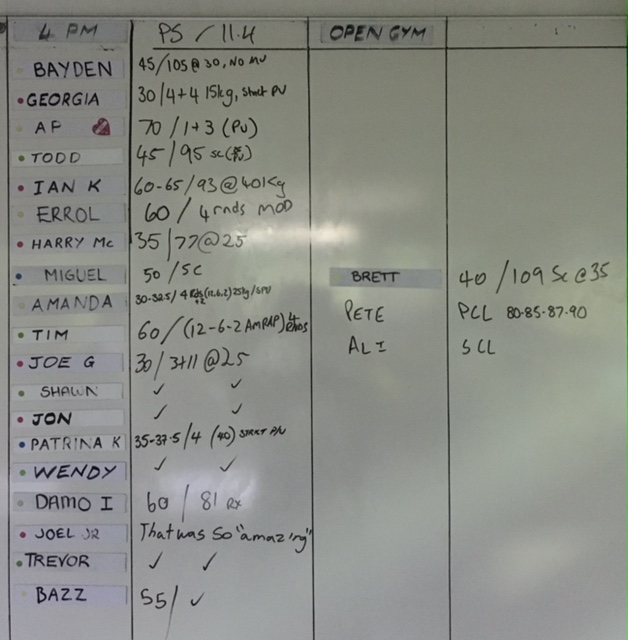 4 PM PS / 11.4 OPEN GYM
BAYDEN 45/105 @ 30, NO MU
GEORGIA 30/4+4 15kg, Strict PU
AP 70 / 1+3 (PU)
TODD 45/95 sc
IAN K 60-65/93 @ 40kg
ERROL 60 / 4 rnds MOD
HARRY Mc 35/77@25
MIGUEL 50 / SC BRETT 40 /109 Sc @35
AMANDA 30-32.5 / 4 (12.6.2) 25kg / PETE PCL 80-85-87-90
TIM 60/(12-6-2 AMRAP) 4 ALI SCL
JOE G 30/3+11 @25
SHAWN ✓ ✓
JON ✓ ✓
PATRINA K 35-37.5/4 (40) STRICT P/U
WENDY ✓ ✓
DAMO I 60 / 81 Rx
JOEL JR That was so "amazing"
TREVOR ✓ ✓
BAZZ 55/ ✓